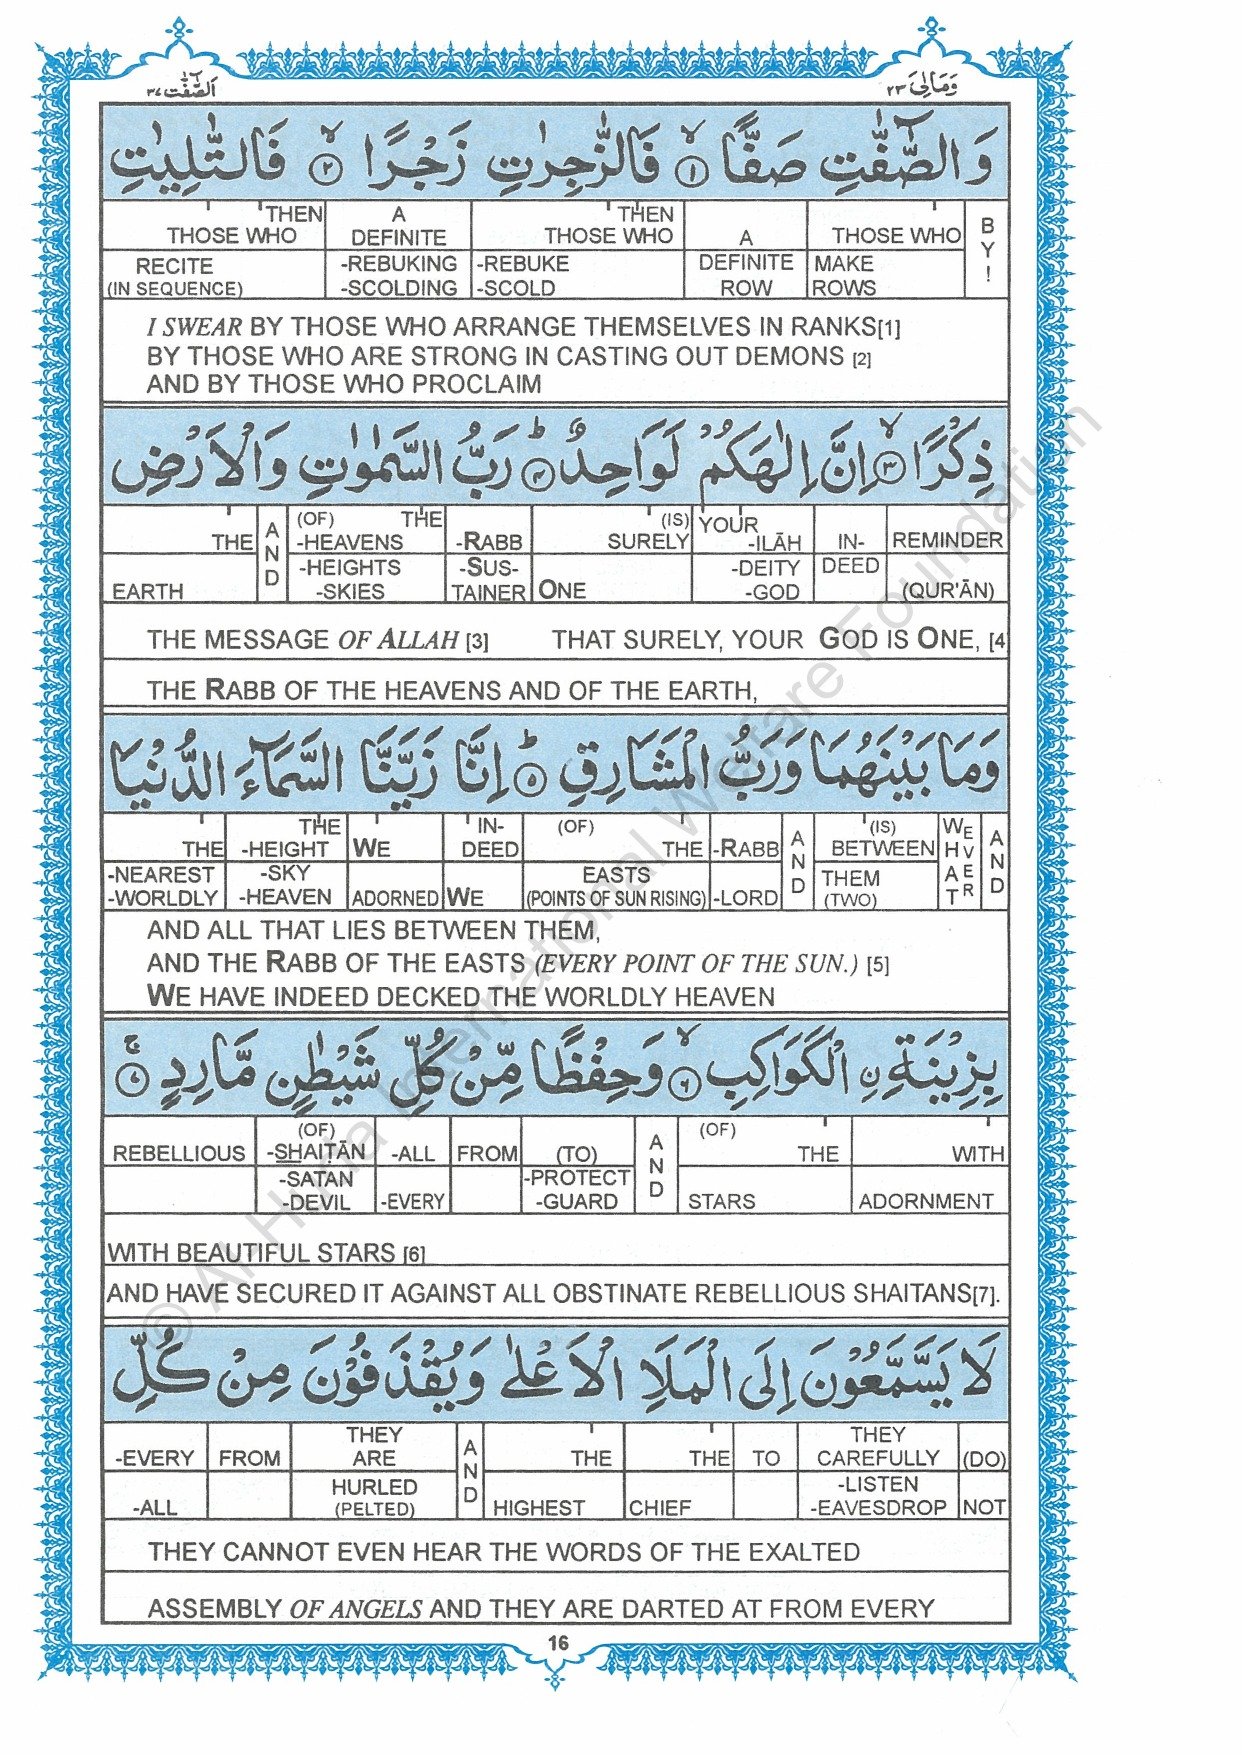 وَمَالِیَ ٢٣
اَلصّٰٓفّٰت ٣٧
وَالصّٰٓفّٰتِ صَفًّا ۙ‏﴿١﴾ فَالزّٰجِرٰتِ زَجْرًا ۙ‏﴿٢﴾ فَالتّٰلِيٰتِ
THEN A THEN B
THOSE WHO DEFINITE THOSE WHO A THOSE WHO Y
RECITE -REBUKING -REBUKE DEFINITE MAKE !
(IN SEQUENCE) -SCOLDING -SCOLD ROW ROWS
I SWEAR BY THOSE WHO ARRANGE THEMSELVES IN RANKS[1]
BY THOSE WHO ARE STRONG IN CASTING OUT DEMONS [2]
AND BY THOSE WHO PROCLAIM
ذِكْرًا ۙ‏﴿٣﴾ اِنَّ اِلٰهَكُمْ لَوَاحِدٌ ؕ‏﴿٤﴾ رَبُّ السَّمٰوٰتِ وَالْاَرْضِ
A (OF) THE (IS) YOUR
THE N -HEAVENS -RABB SURELY -ILĀH IN- REMINDER
D -HEIGHTS -SUS- -DEITY DEED
EARTH -SKIES TAINER ONE -GOD (QUR'ĀN)
THE MESSAGE OF ALLAH [3] THAT SURELY, YOUR GOD IS ONE, [4
THE RABB OF THE HEAVENS AND OF THE EARTH,
وَمَا بَيْنَهُمَا وَرَبُّ الْمَشَارِقِ ؕ‏﴿٥﴾ اِنَّا زَيَّنَّا السَّمَآءَ الدُّنْيَا
THE IN- (OF) A (IS) WHATEVER AND
THE -HEIGHT WE DEED THE -RABB N BETWEEN
-NEAREST -SKY EASTS D THEM
-WORLDLY -HEAVEN ADORNED WE (POINTS OF SUN RISING) -LORD (TWO)
AND ALL THAT LIES BETWEEN THEM,
AND THE RABB OF THE EASTS (EVERY POINT OF THE SUN.) [5]
WE HAVE INDEED DECKED THE WORLDLY HEAVEN
بِزِيْنَةِ ۨ الْكَوَاكِبِ ۙ‏﴿٦﴾ وَحِفْظًا مِّنْ كُلِّ شَيْطٰنٍ مَّارِدٍ ۚ‏﴿٧﴾
(OF) A (OF)
REBELLIOUS -SHAITĀN -ALL FROM (TO) N THE WITH
-SATAN -PROTECT D
-DEVIL -EVERY -GUARD STARS ADORNMENT
WITH BEAUTIFUL STARS [6]
AND HAVE SECURED IT AGAINST ALL OBSTINATE REBELLIOUS SHAITANS[7].
لَا يَسَّمَّعُوْنَ اِلَى الْمَلَاِ الْاَعْلٰى وَيُقْذَفُوْنَ مِنْ كُلِّ
THEY A THEY
-EVERY FROM ARE N THE THE TO CAREFULLY (DO)
HURLED D -LISTEN
-ALL (PELTED) HIGHEST CHIEF -EAVESDROP NOT
THEY CANNOT EVEN HEAR THE WORDS OF THE EXALTED
ASSEMBLY OF ANGELS AND THEY ARE DARTED AT FROM EVERY
16
© Al-Huda International Welfare Foundation